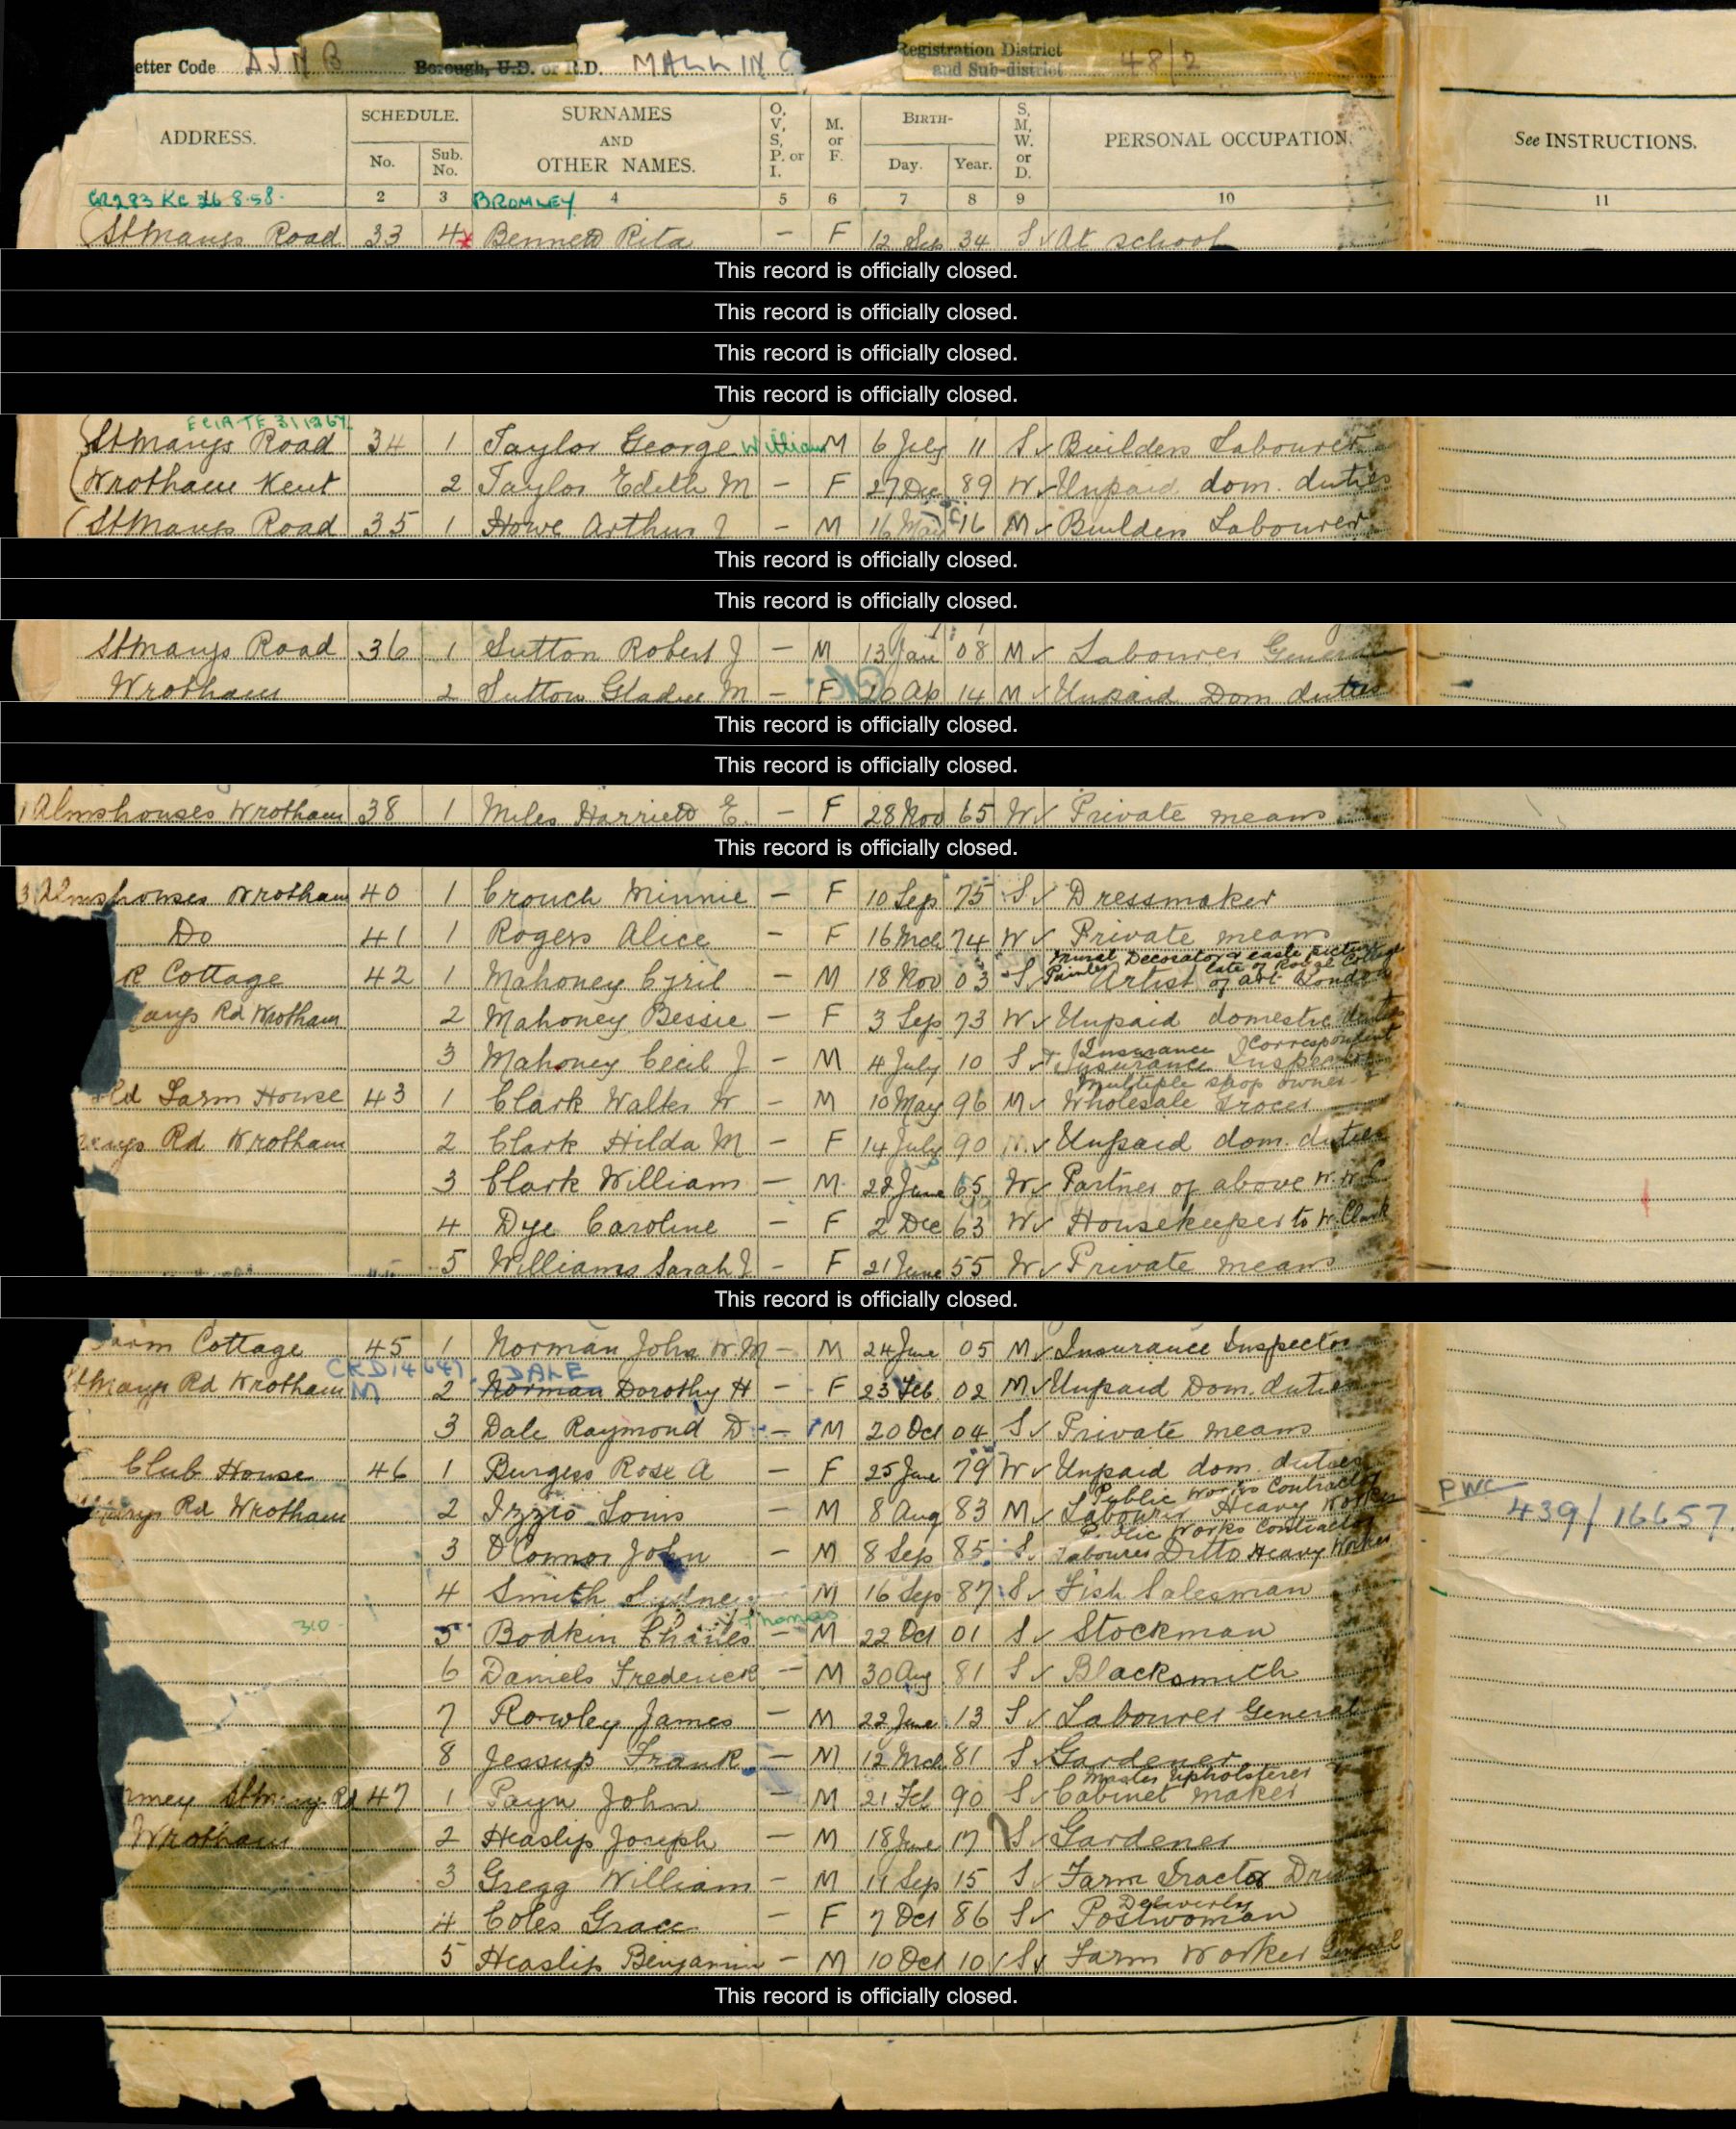 etter Code DJNB Borough, U.D. or R.D. MALLING Registration District and Sub-district 48/2
ADDRESS. SCHEDULE. No. Sub. No. SURNAMES AND OTHER NAMES. O, V, S, P. or I. M. or F. BIRTH- Day. Year. S, M, W. or D. PERSONAL OCCUPATION. See INSTRUCTIONS.
GR293 KC 26.8.58. 2 3 BROMLEY 4 5 6 7 8 9 10 11
St Marys Road 33 4 Bennett Rita - F 12 Sep 34 S At school
This record is officially closed.
This record is officially closed.
This record is officially closed.
This record is officially closed.
St Marys Road 34 1 Taylor George William M 6 July 11 S Builders Labourer
Wrotham Kent 2 Taylor Edith M - F 27 Dec 89 W Unpaid dom. duties
St Marys Road 35 1 Howe Arthur J - M 16 May 16 M Builders Labourer
This record is officially closed.
This record is officially closed.
St Marys Road 36 1 Sutton Robert J - M 13 Jan 08 M Labourer General
Wrotham 2 Sutton Gladys M - F 20 Ap 14 M Unpaid Dom duties
This record is officially closed.
This record is officially closed.
1 Almshouses Wrotham 38 1 Miles Harriett E. - F 28 Nov 65 W Private means
This record is officially closed.
3 Almshouses Wrotham 40 1 Crouch Minnie - F 10 Sep 75 S Dressmaker
Do 41 1 Rogers Alice - F 16 Mch 74 W Private means
Mural Decorator & easle picture
R Cottage 42 1 Mahoney Cyril - M 18 Nov 03 S Painter Artist late of Royal College of art London
arys Rd Wrotham 2 Mahoney Bessie - F 3 Sep 73 W Unpaid domestic duties
Insurance Correspondent
3 Mahoney Cecil J - M 4 July 10 S Insurance Inspector
Multiple shop owner &
ld Farm House 43 1 Clark Walter W - M 10 May 96 M Wholesale Grocer
arys Rd Wrotham 2 Clark Hilda M - F 14 July 90 M Unpaid dom. duties
3 Clark William - M 22 June 65 W Partner of above W.W.C
4 Dye Caroline - F 2 Dec 63 W Housekeeper to W. Clark
5 Williams Sarah J - F 21 June 55 W Private means
This record is officially closed.
Farm Cottage 45 1 Norman John W.M - M 24 June 05 M Insurance Inspector
DALE
St Marys Rd Wrotham M 2 Norman Dorothy H - F 23 Feb 02 M Unpaid Dom. duties
3 Dale Raymond D - M 20 Oct 04 S Private means
Club House 46 1 Burgess Rose A - F 25 June 79 W Unpaid dom. duties
Public Works Contractor
arys Rd Wrotham 2 Izzio Louis - M 8 Aug 83 M Labourer Heavy Worker PWC 439/16657
Public Works Contractor
3 O'Connor John - M 8 Sep 85 S Labourer Ditto Heavy Worker
4 Smith Sydney M 16 Sep 87 S Fish Salesman
310 5 Bodkin Charles Thomas - M 22 Oct 01 S Stockman
6 Daniels Frederick - M 30 Aug 81 S Blacksmith
7 Rowley James - M 22 June 13 S Labourer General
8 Jessup Frank - M 12 Mch 81 S Gardener
Master Upholsterer
rmey St Marys Rd 47 1 Payn John - M 21 Feb 90 S Cabinet maker
Wrotham 2 Heaslip Joseph - M 18 June 17 S Gardener
3 Gregg William - M 11 Sep 15 S Farm Tractor Driver
Delivering
4 Coles Grace - F 7 Oct 86 S Postwoman
5 Heaslip Benjamin - M 10 Oct 10 S Farm Worker General
This record is officially closed.